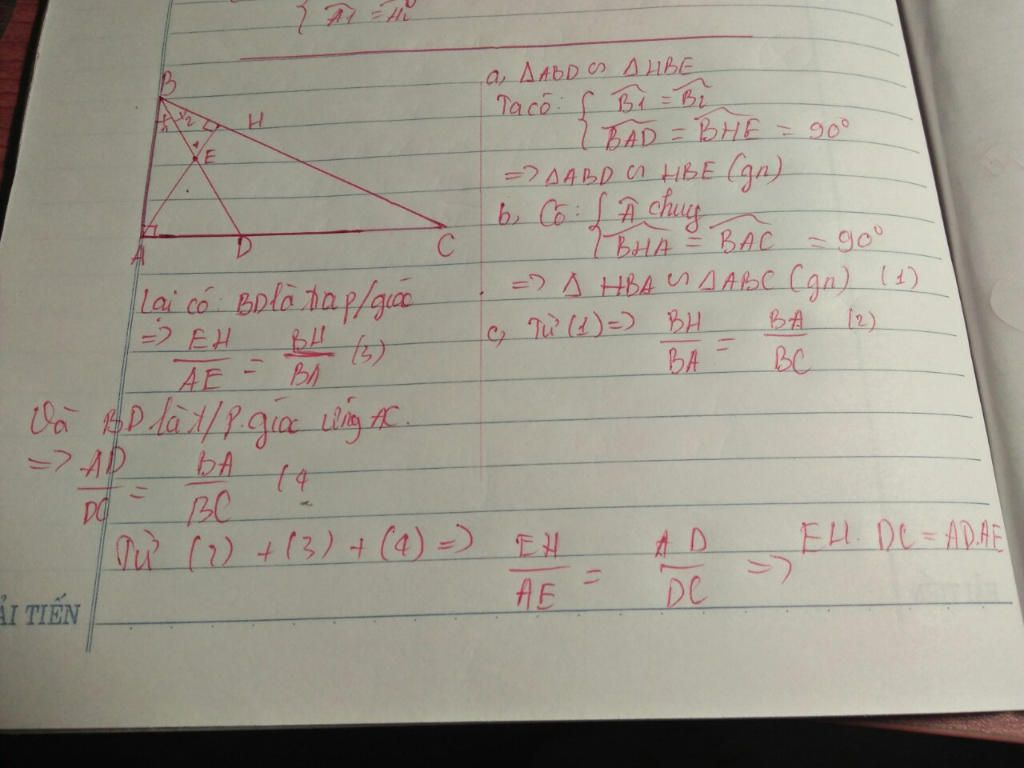 { Â1 = H2
B
x x2
H
1
E
A
D
C
a, ΔABD ∽ ΔHBE
Ta có: { B̂1 = B̂2
BAD = BHE = 90°
=> ΔABD ∽ HBE (gn)
b, Có: { Â chung
BHA = BAC = 90°
=> Δ HBA ∽ ΔABC (gn) (1)
c, Từ (1) => BH/BA = BA/BC (2)
Lại có: BD là tia p/giác
=> EH/AE = BH/BA (3)
Và BD là t/p.giác ứng AC.
=> AD/DC = BA/BC (4
Từ (2) + (3) + (4) => EH/AE = AD/DC => EH. DC = AD.AE
ẢI TIẾN